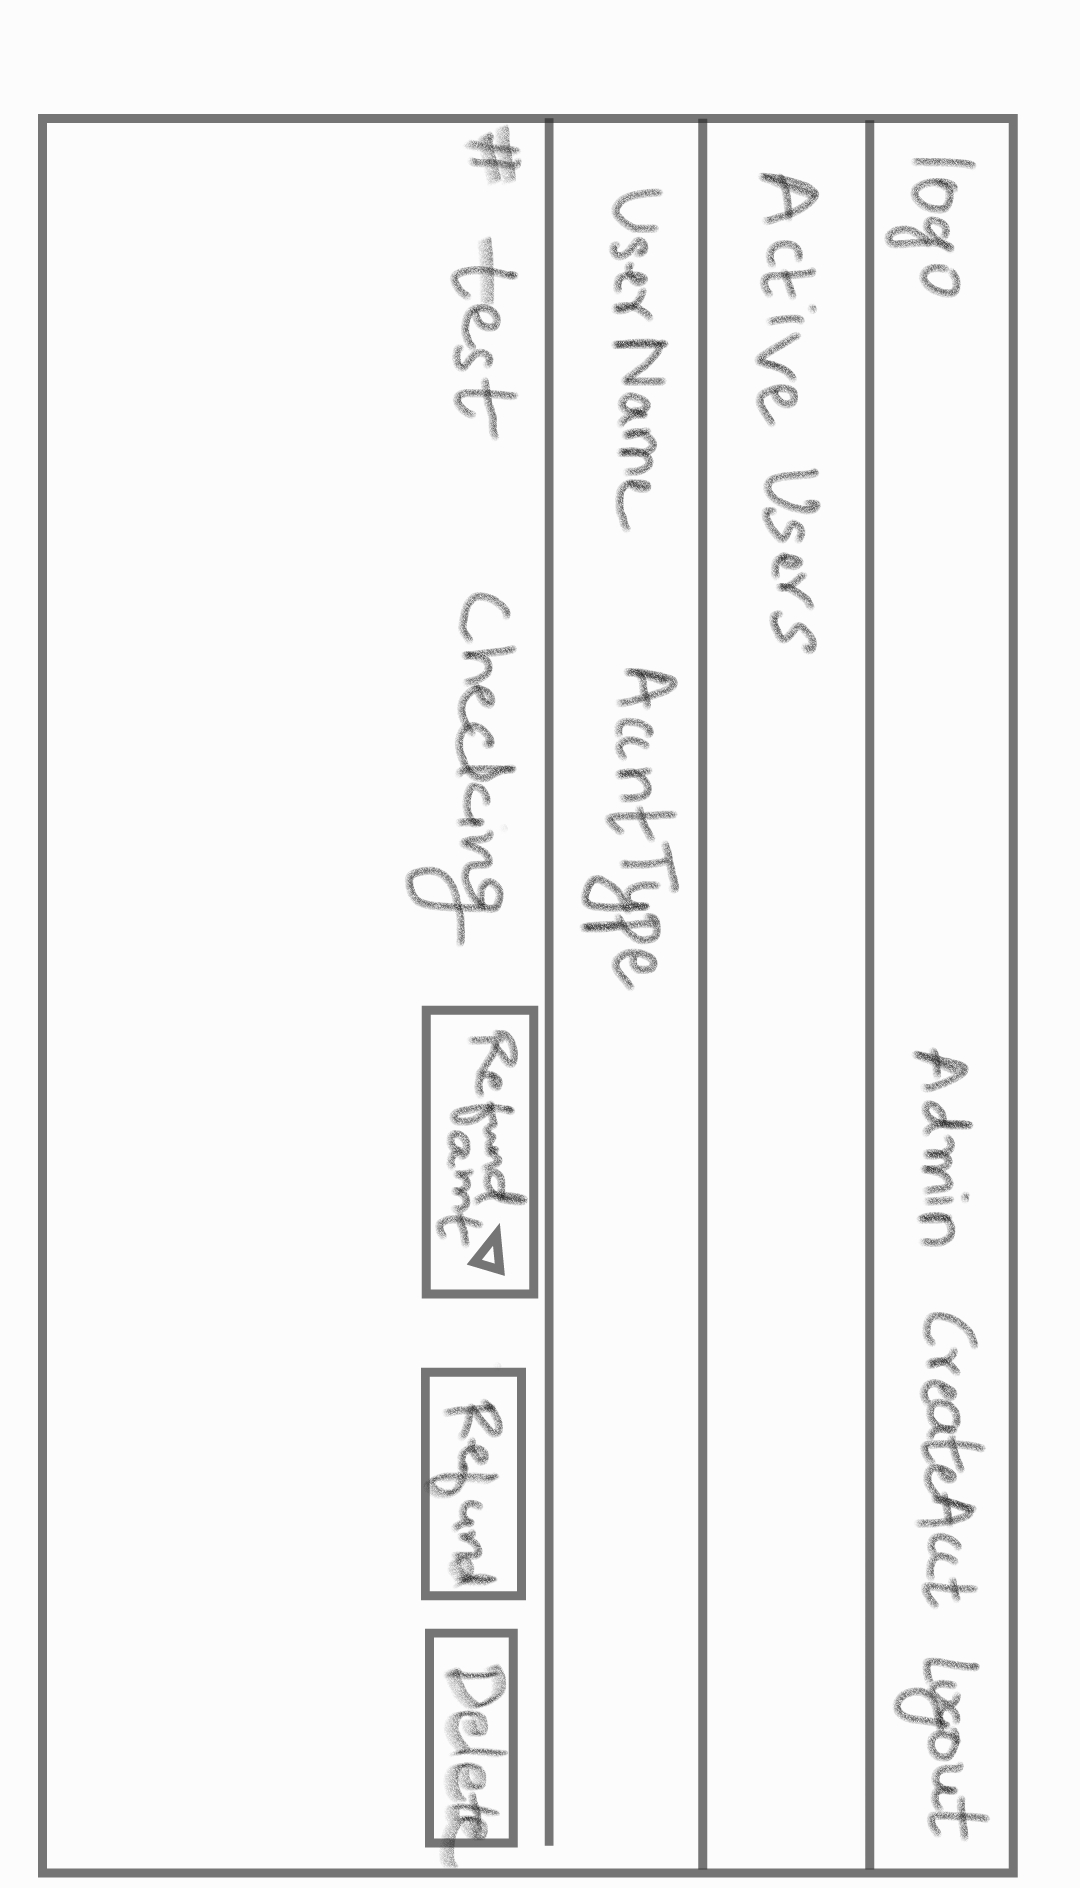 logo Admin CreateAcct Logout
Active Users
UserName AccntType
# test Checking Refund amt Refund Delete